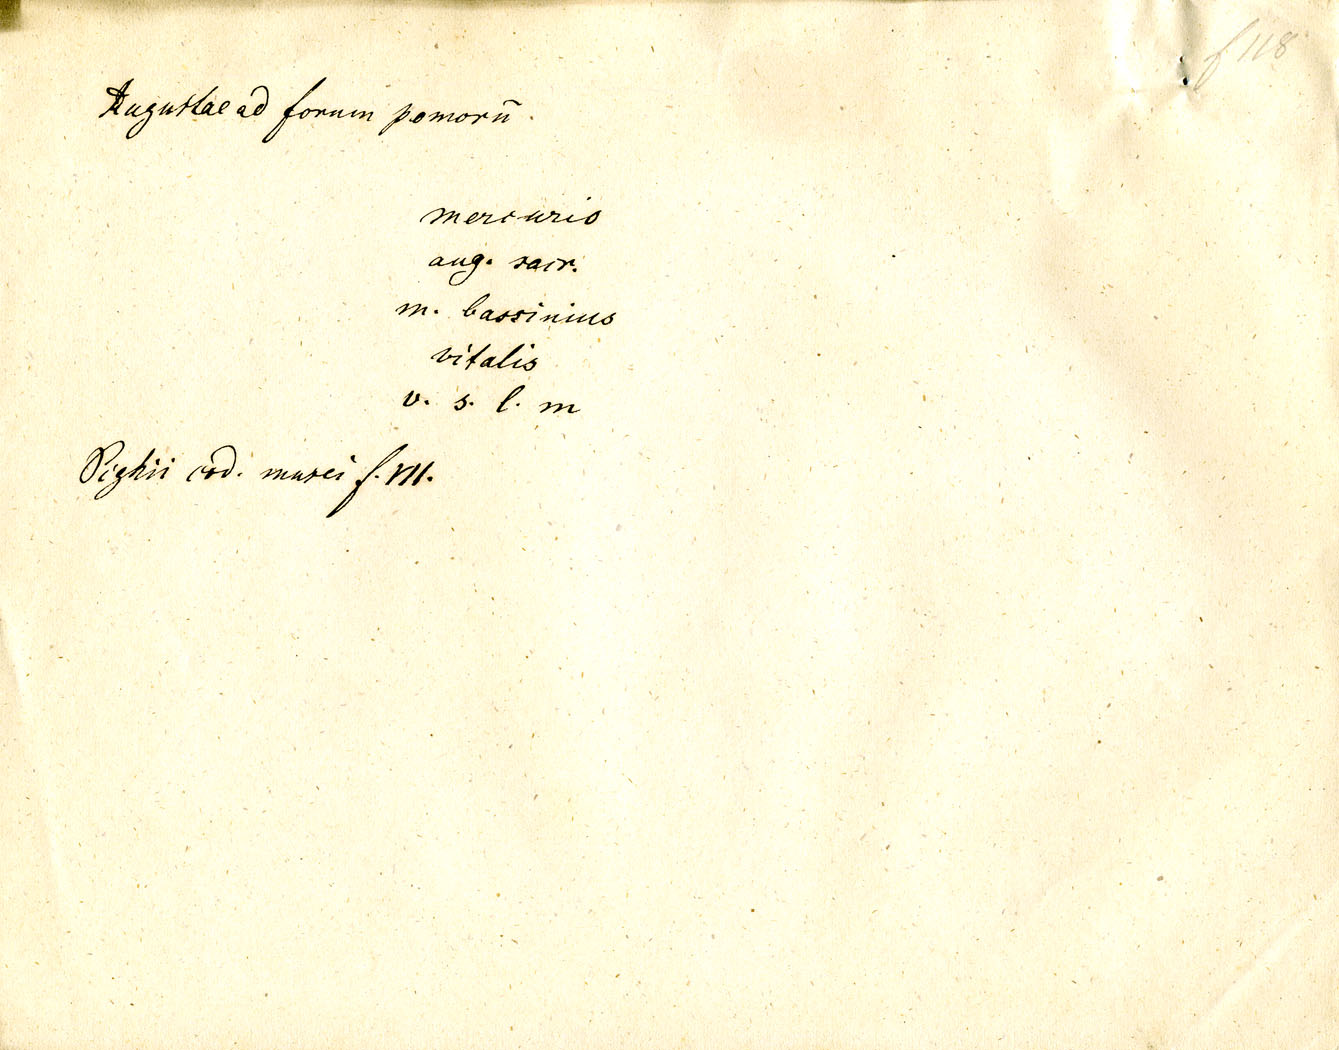 f 118
Augustae ad forum pomorū.
mercurio
aug. sacr.
m. bassinius
vitalis
v. s. l. m
Pighii cod. musei f. VII.